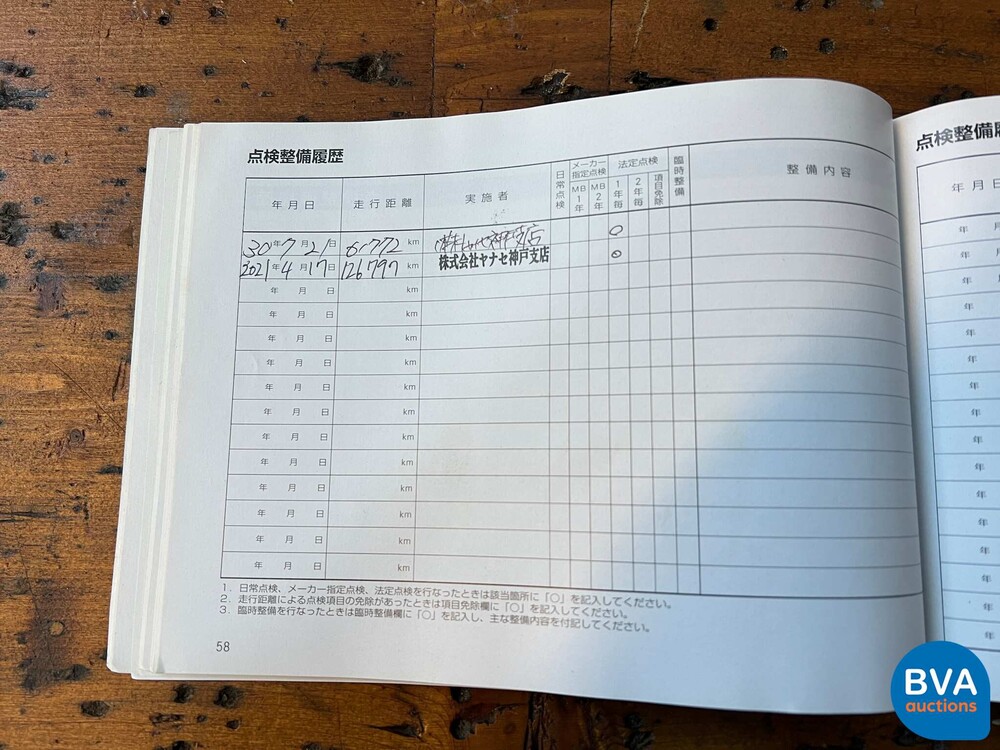 点検整備履歴
年月日 走行距離 実施者 日常点検 メーカー指定点検 MB1年 MB2年 法定点検 1年毎 2年毎 項目免除 臨時整備 整備内容
30年7月21日 km ○
2021年4月17日 126797 km 株式会社ヤナセ神戸支店 ○
年 月 日 km
年 月 日 km
年 月 日 km
年 月 日 km
年 月 日 km
年 月 日 km
年 月 日 km
年 月 日 km
年 月 日 km
年 月 日 km
年 月 日 km
年 月 日 km
1. 日常点検、メーカー指定点検、法定点検を行なったときは該当箇所に「○」を記入してください。
2. 走行距離による点検項目の免除があったときは項目免除欄に「○」を記入してください。
3. 臨時整備を行なったときは臨時整備欄に「○」を記入し、主な整備内容を付記してください。
58
点検整備履
年月日
年 月
年 月
年 月
年
年
年
年
年
年
年
年
年
年
年
年
年
BVA
auctions